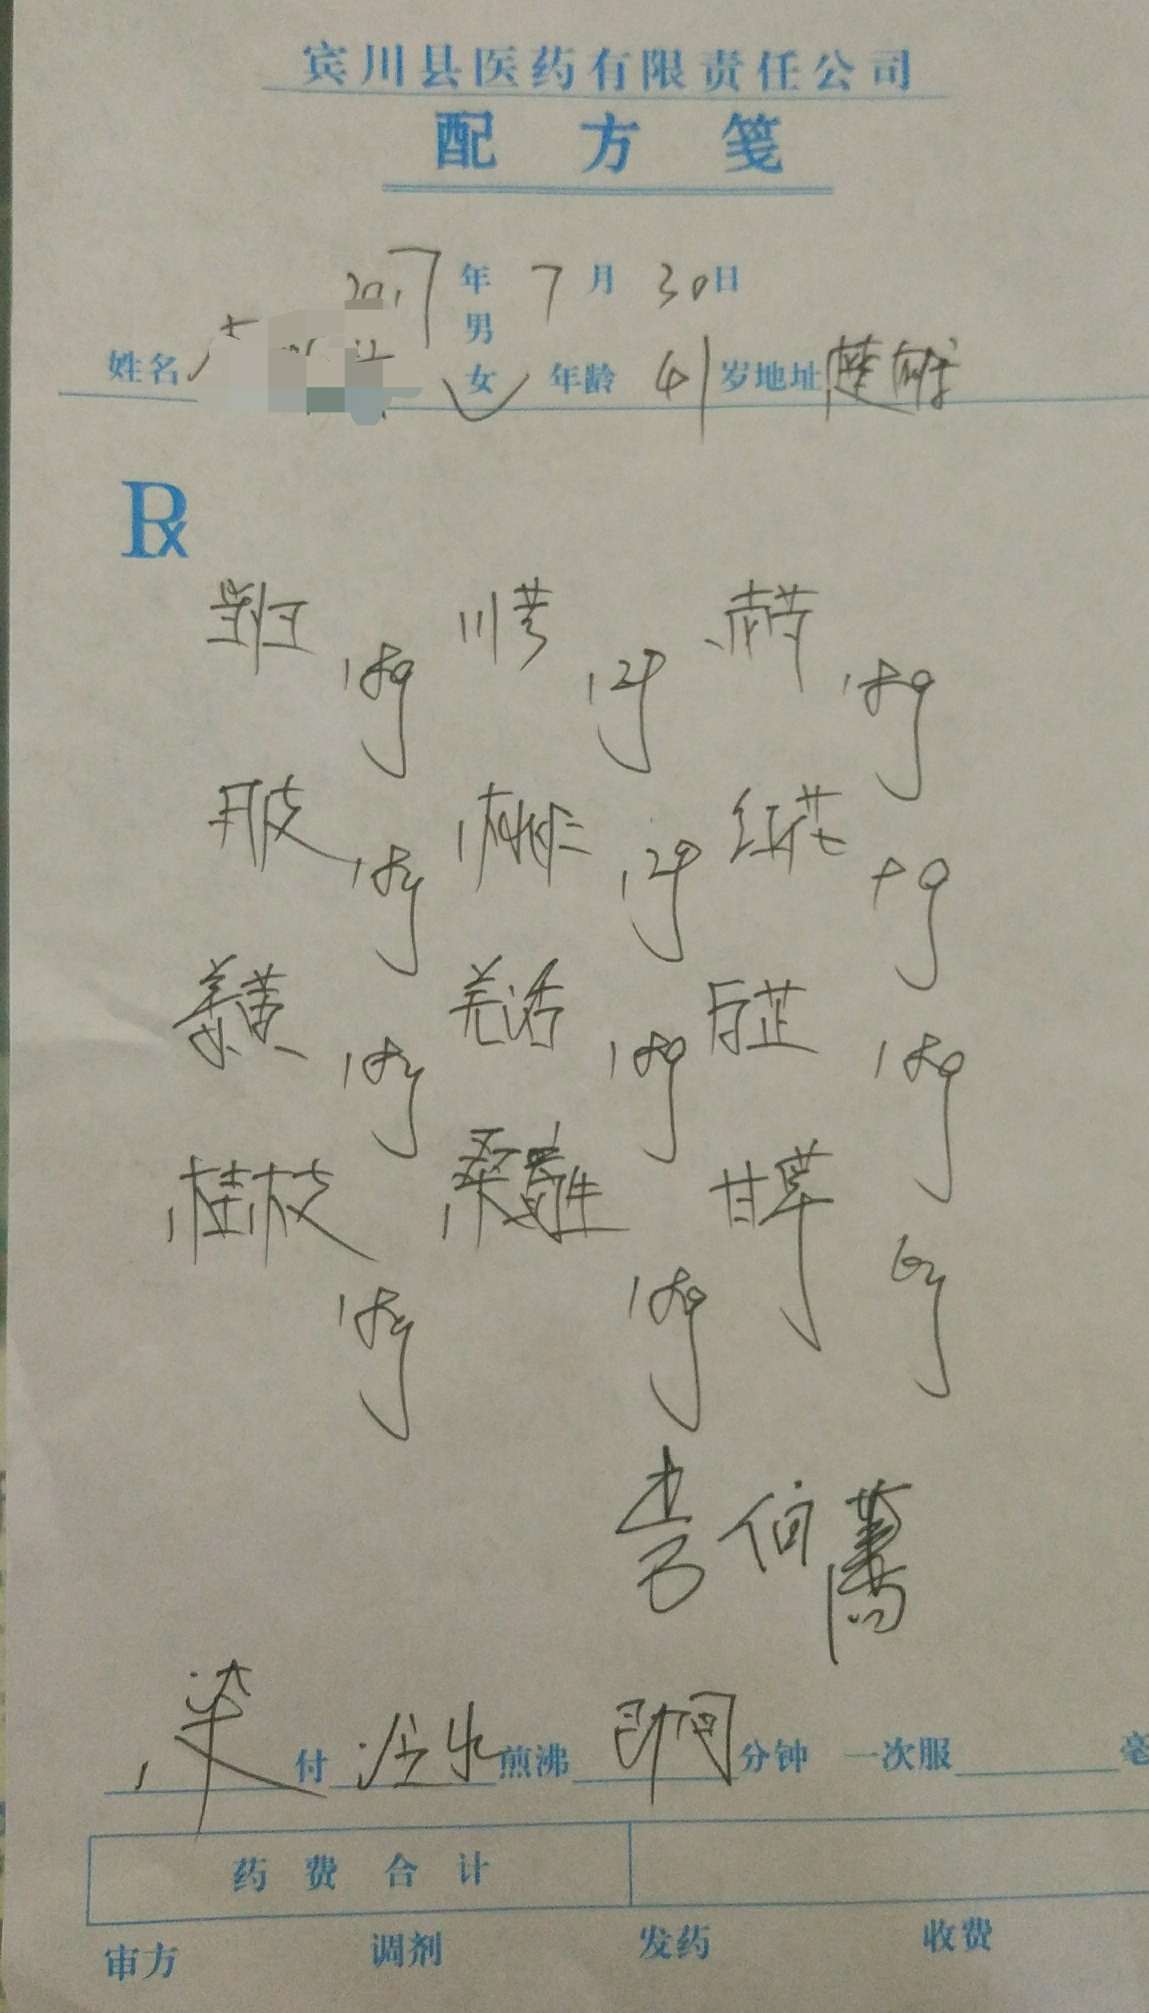 宾川县医药有限责任公司
配方笺
2017年7月30日
姓名 男 女✓ 年龄 41岁 地址 楚雄
Rx
川芎 12g 赤芍 18g
丹皮 18g 桃仁 12g 红花 g
姜黄 18g 羌活 18g 白芷 18g
桂枝 18g 桑寄生 18g 甘草 6g
付 煎沸 时间 分钟 一次服 毫
药费合计
审方 调剂 发药 收费